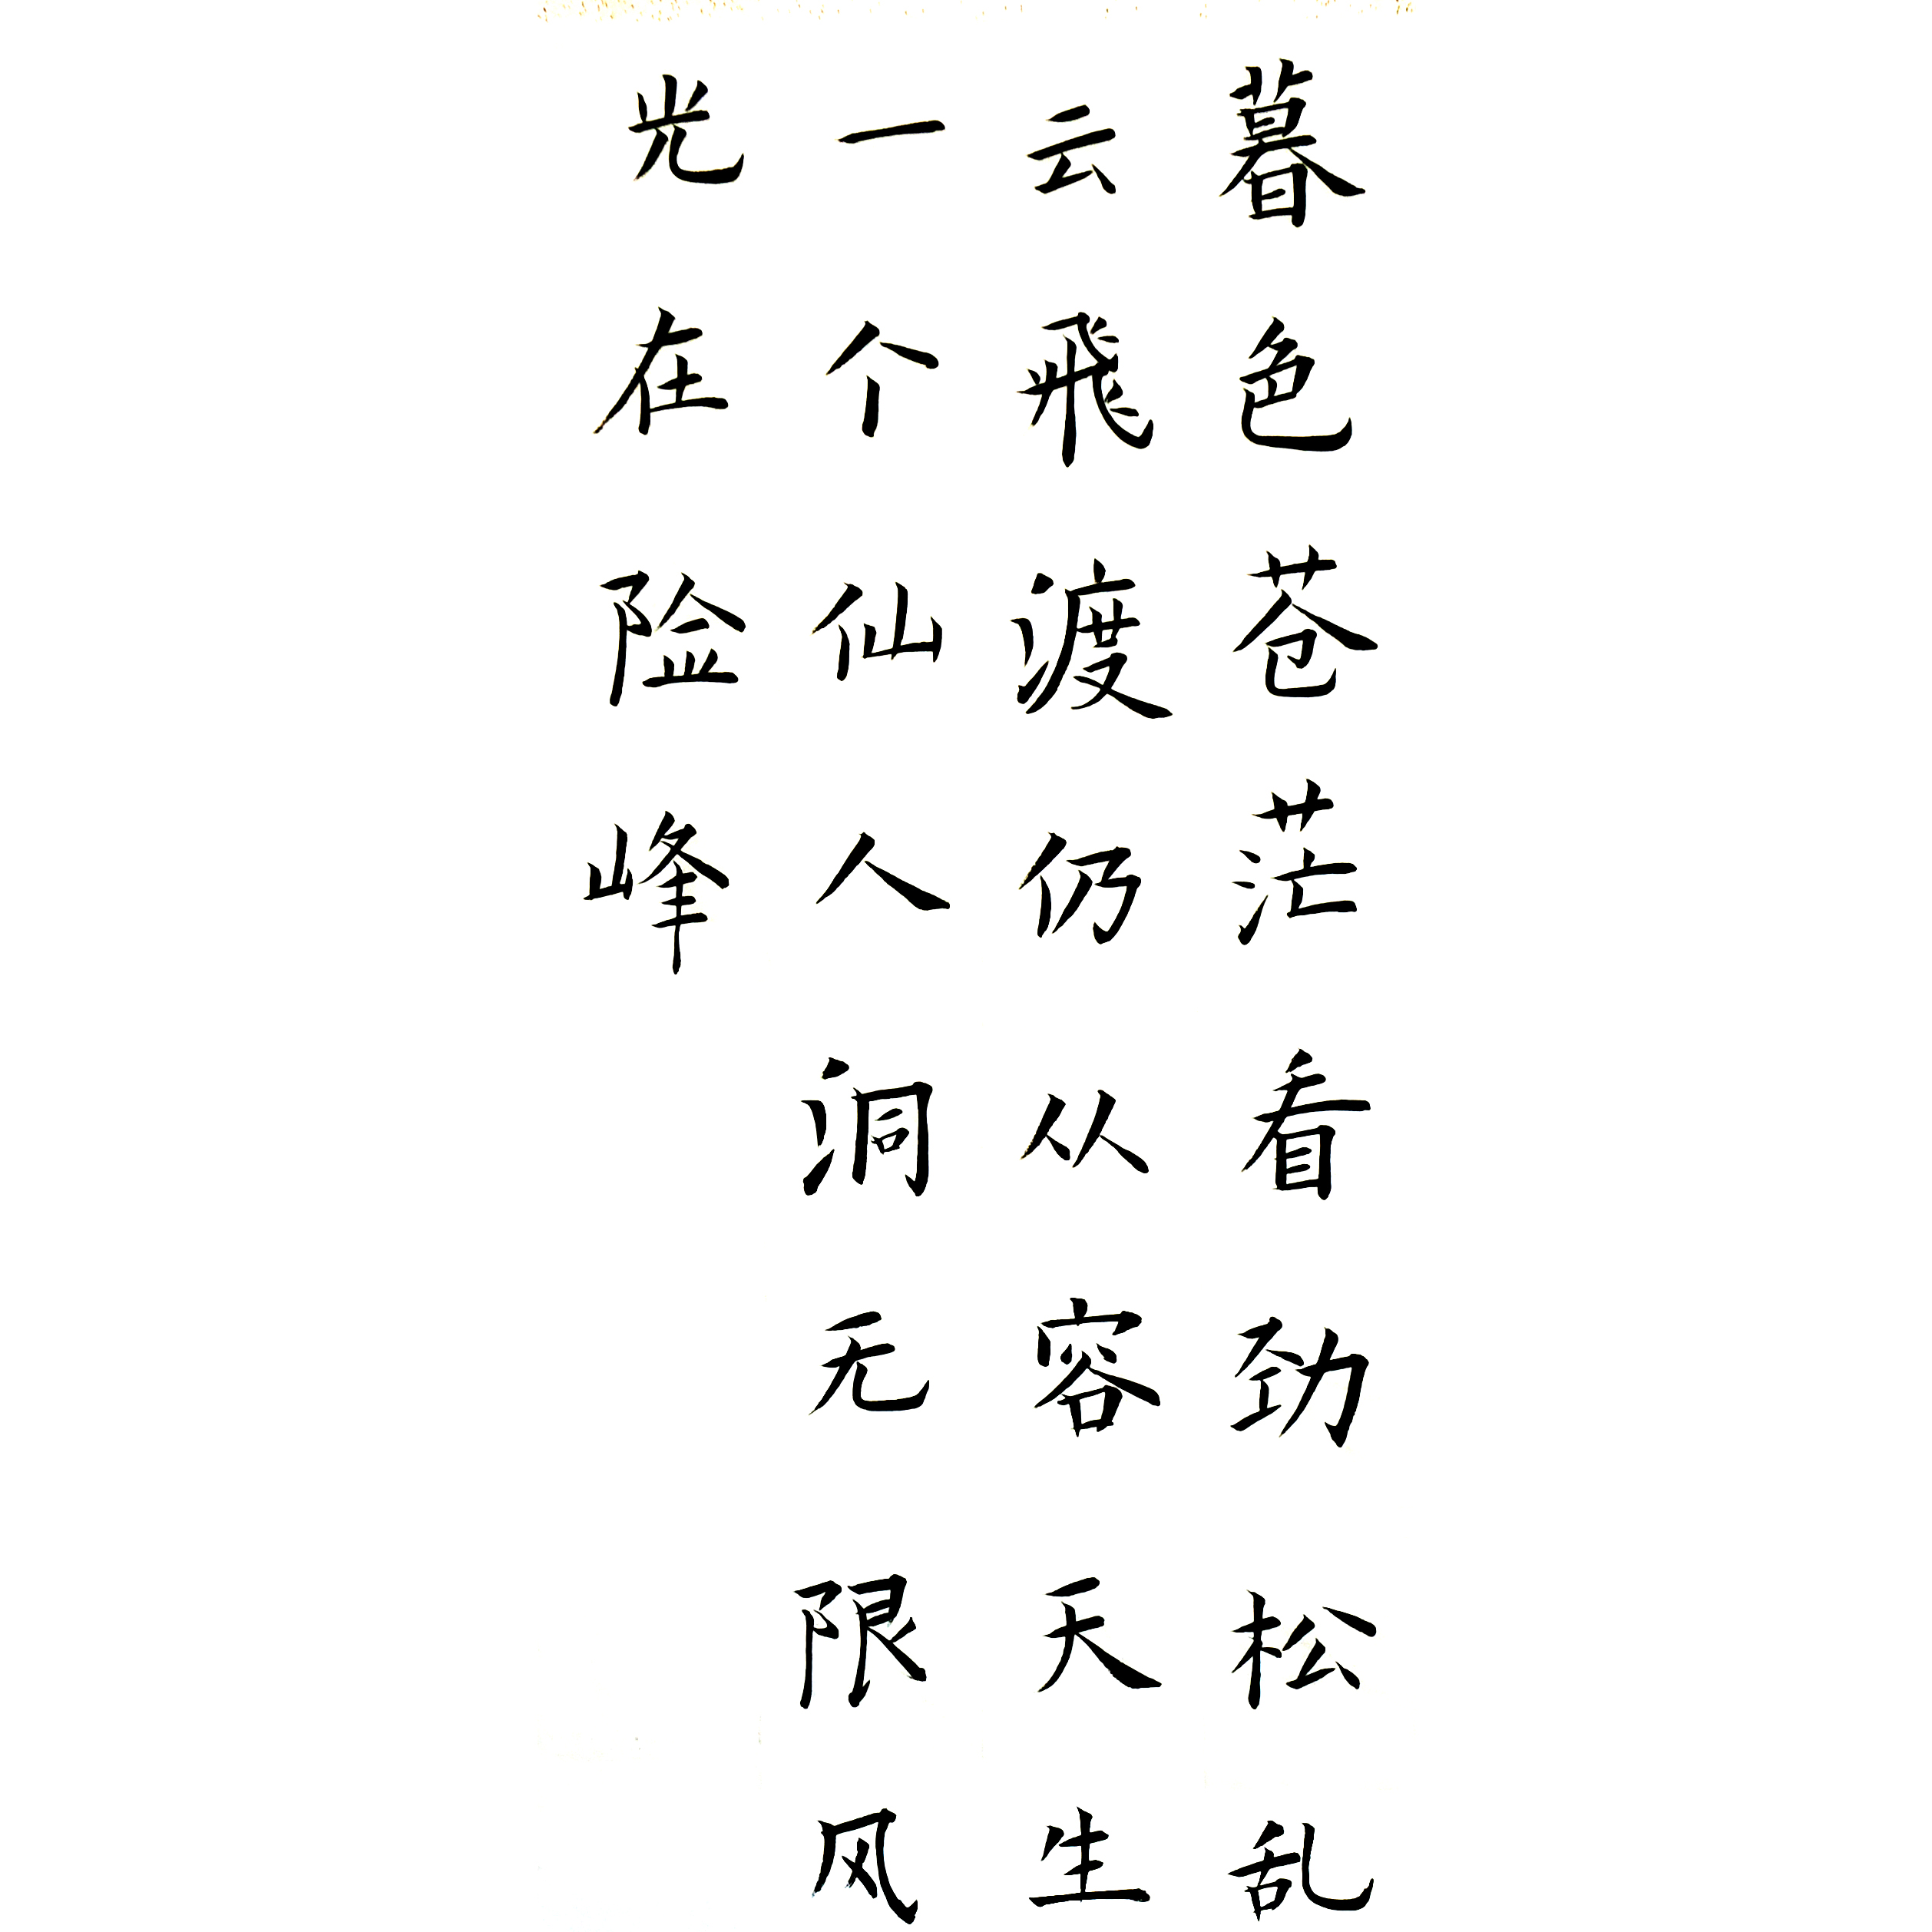 暮色苍茫看劲松乱
云飛渡仍从容天生
一个仙人洞无限风
光在险峰